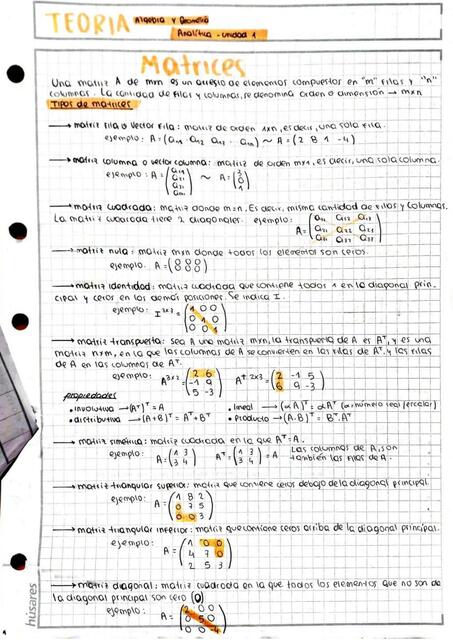 TEORIA Algebra y Geometría
Analítica - unidad 1
Matrices
Una matriz A de mxn es un arreglo de elementos compuestos en "m" filas y "n"
columnas. La cantidad de filas y columnas, se denomina orden o dimensión → mxn
Tipos de matrices
→ matriz fila o vector fila: matriz de orden 1xn, es decir, una sola fila.
ejemplo: A = (a₁₁ a₁₂ a₁₃ ... a₁ₙ) ~ A = (2 8 1 -4)
→ matriz columna o vector columna: matriz de orden mx1, es decir, una sola columna.
ejemplo: A = ~ A =
→ matriz cuadrada: matriz donde m=n. Es decir, misma cantidad de filas y columnas.
La matriz cuadrada tiene 2 diagonales. ejemplo: A = (a₁₁ a₁₂ a₁₃
a₂₁ a₂₂ a₂₃
a₃₁ a₃₂ a₃₃)
→ matriz nula: matriz mxn donde todos los elementos son ceros.
ejemplo: A = (0 0 0
0 0 0)
→ matriz identidad: matriz cuadrada que contiene todos 1 en la diagonal prin-
cipal y ceros en las demás posiciones. Se indica I.
ejemplo: I³ˣ³ = (1 0 0
0 1 0
0 0 1)
→ matriz transpuesta: sea A una matriz mxn, la transpuesta de A es Aᵀ, y es una
matriz nxm, en la que las columnas de A se convierten en las filas de Aᵀ, y las filas
de A en las columnas de Aᵀ.
ejemplo: A³ˣ² = (2 6 Aᵀ ²ˣ³ = (2 -1 5
-1 9 6 9 -3)
5 -3)
propiedades
• involutiva → (Aᵀ)ᵀ = A • lineal → (αA)ᵀ = αAᵀ (α: número real/escalar)
• distributiva → (A+B)ᵀ = Aᵀ+Bᵀ • Producto → (A.B)ᵀ = Bᵀ.Aᵀ
→ matriz simétrica: matriz cuadrada en la que Aᵀ=A.
ejemplo: A = (1 3 Aᵀ = (1 3 = A Las columnas de A, son
3 4) 3 4) también las filas de A.
→ matriz triangular superior: matriz que contiene ceros debajo de la diagonal principal.
ejemplo: A = (1 8 2
0 7 5
0 0 3)
→ matriz triangular inferior: matriz que contiene ceros arriba de la diagonal principal.
ejemplo: A = (1 0 0
4 7 0
2 5 3)
→ matriz diagonal: matriz cuadrada en la que todos los elementos que no son de
la diagonal principal son cero (0)
ejemplo: A = (2 0 0
0 5 0
0 0 -4)
húsares